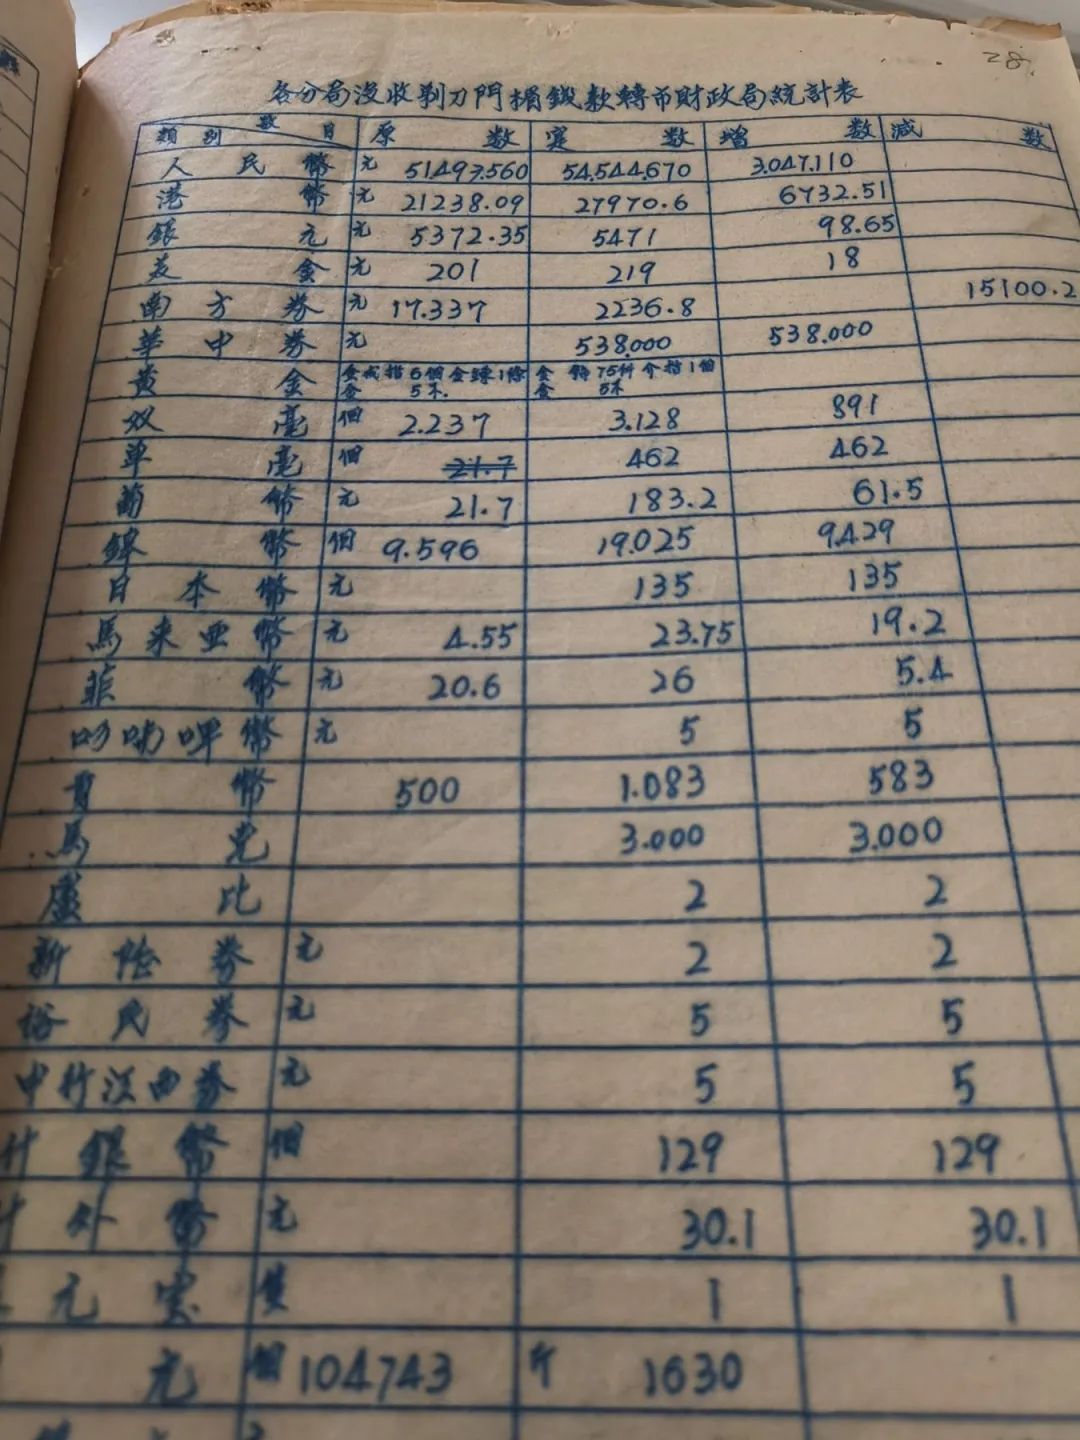 28.
各分局沒收剃刀門損毀款轉市財政局統計表
類別 数目 原数 實数 增数 減数
人民幣 元 51497.560 54,544,670 3.047,110
港幣 元 21238.09 27970.6 6732.51
銀元 元 5372.35 5471 98.65
美金 元 201 219 18
南方券 元 17.337 2236.8 15100.2
華中券 元 538.000 538.000
黃金 金戒指6個金鍊1條 金5不. 金鎊75件介指1個 金5不
双毫 個 2.237 3.128 891
单毫 個 21.7 462 462
葡幣 元 21.7 183.2 61.5
鎳幣 個 9.596 19.025 9.429
日本幣 元 135 135
馬来亚幣 元 4.55 23.75 19.2
菲幣 元 20.6 26 5.4
幣 元 5 5
幣 500 1.083 583
馬克 3.000 3.000
盧比 2 2
新陸券 元 2 2
裕民券 元 5 5
中竹江西券 元 5 5
銀幣 個 129 129
外幣 元 30.1 30.1
元宝 隻 1 1
元 個 104743 斤 1630